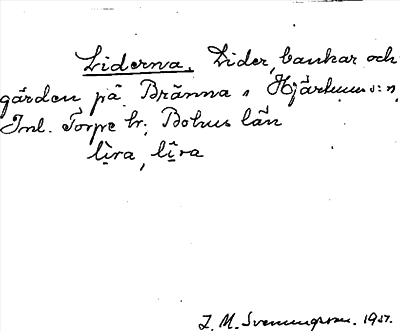 Liderna. Lider, bankar och
gården på Bränna i Hjärtums s:n,
Inl. Torpe hr; Bohus län
li̱ra, li̱ra
J. M. Svenungsson. 1927.